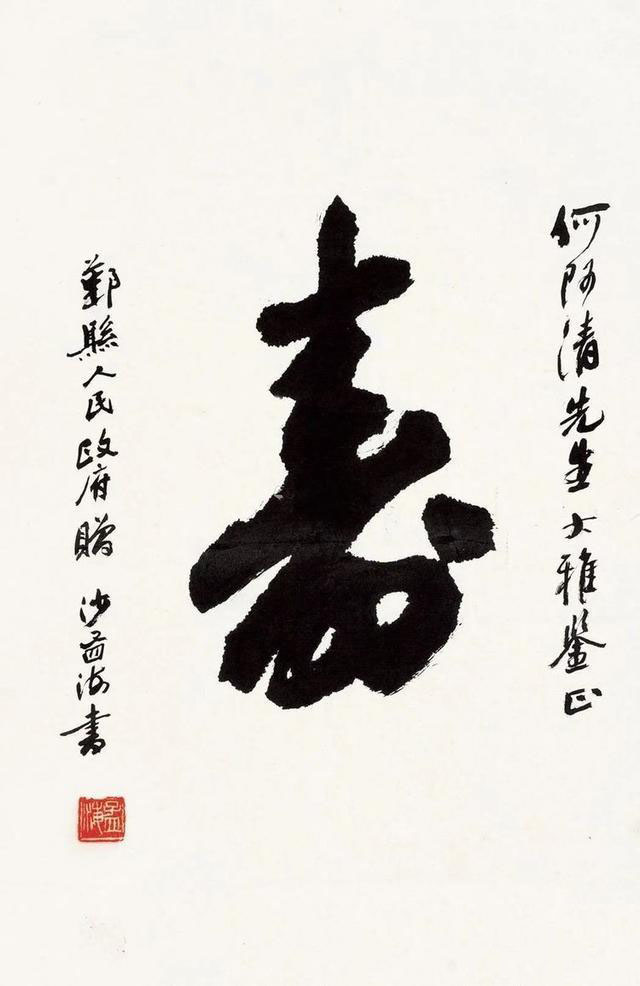 何阿清先生大雅鑒正
寿
鄞縣人民政府贈 沙孟海書
孟海